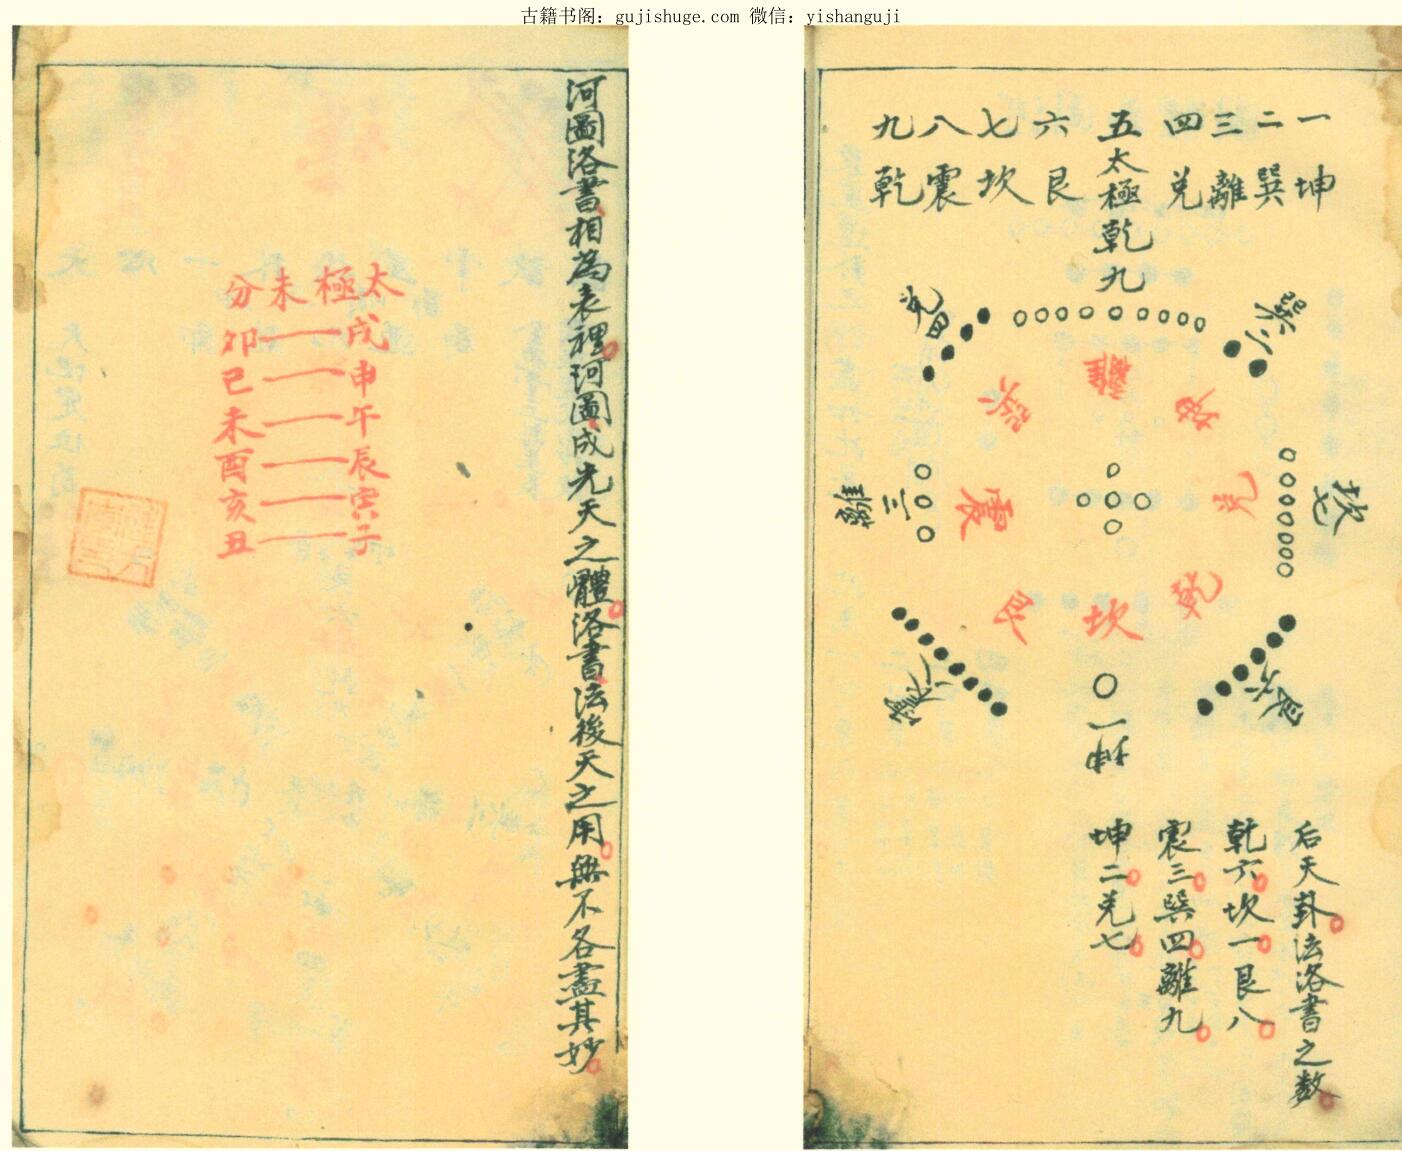 古籍书阁：gujishuge.com 微信：yishanguji
一坤
二巽
三離
四兌
五太極乾九
六艮
七坎
八震
九乾
巽二
兌四
坎七
離三
艮六
震八
一坤
離
坤
兌
乾
坎
艮
震
巽
后天卦法洛書之数
乾六坎一艮八
震三巽四離九
坤二兌七
河圖洛書相為表裡河圖成先天之體洛書法後天之用無不各盡其妙
太極未分
戌一卯
申一巳
午一未
辰一酉
寅一亥
子一丑